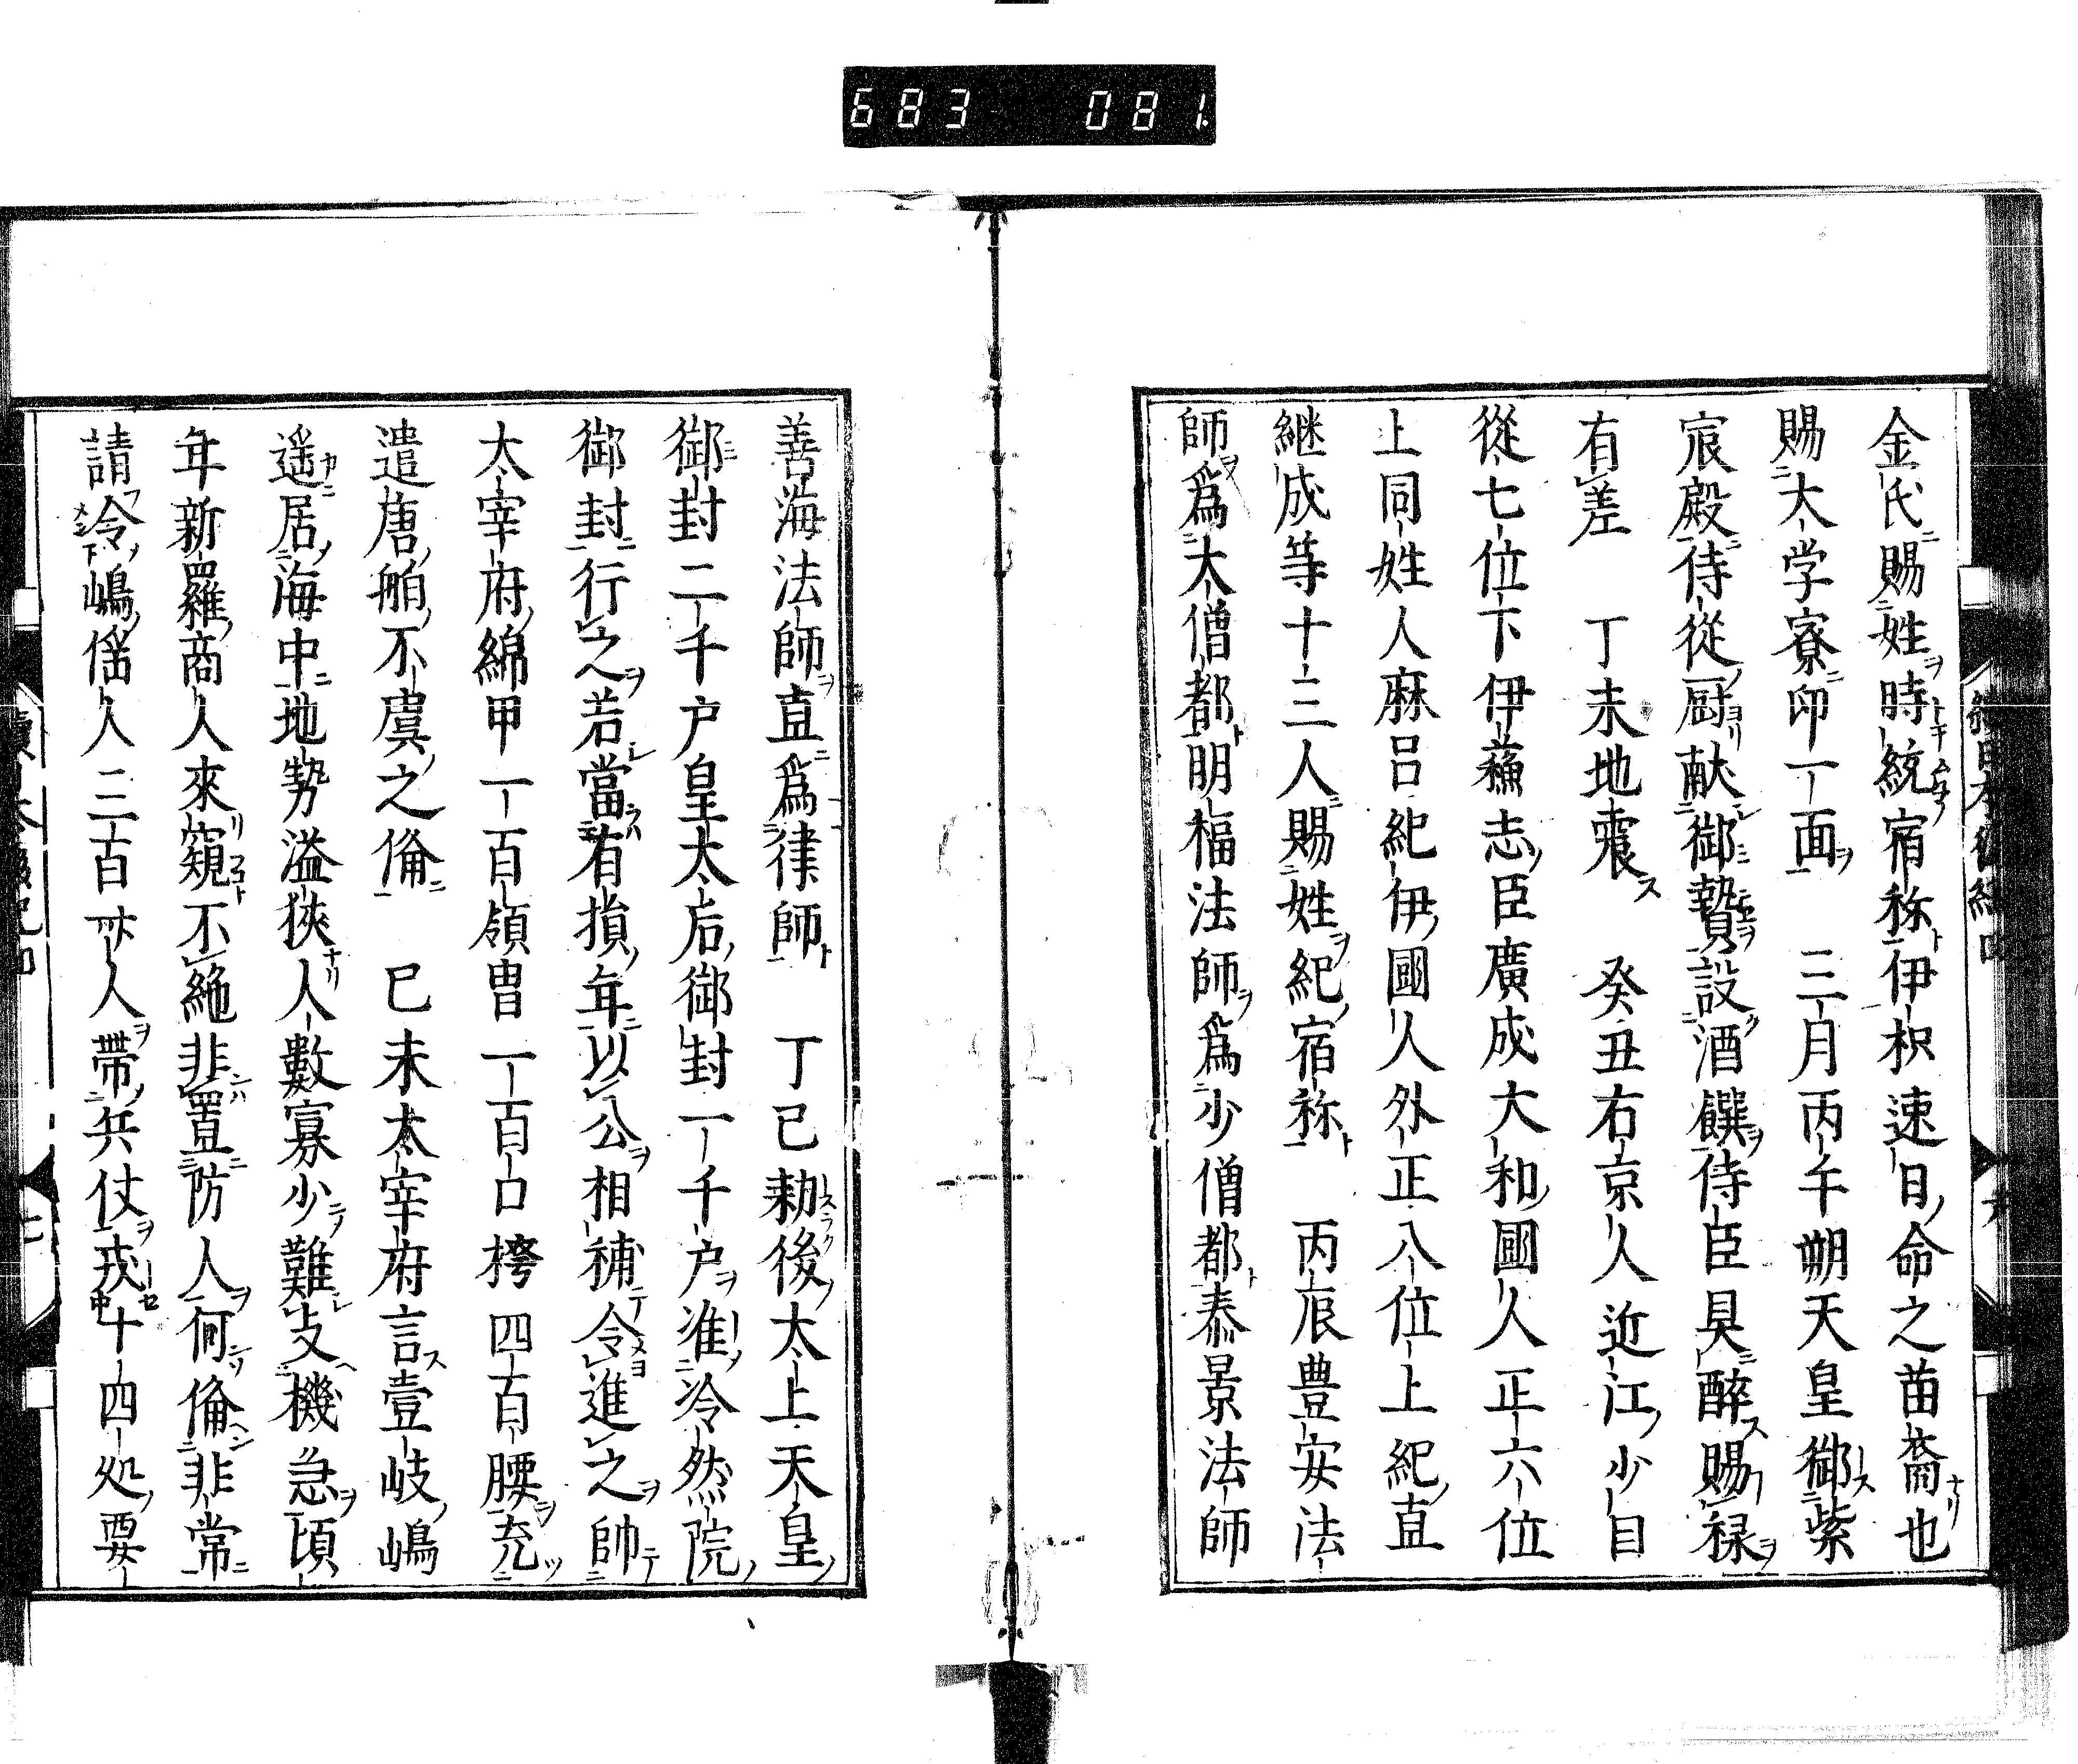 683 081
金氏賜姓時統宿祢伊枳速日命之苗裔也
賜大学寮印一面 三月丙午朔天皇御紫
宸殿侍從厨献御贄設酒饌侍臣具醉賜禄
有差 丁未地震 癸丑右京人近江少目
從七位下伊蘓志臣廣成大和國人正六位
上同姓人麻呂紀伊國人外正八位上紀直
継成等十三人賜姓紀宿祢 丙辰豊安法
師爲大僧都明福法師爲少僧都泰景法師
善海法師直爲律師 丁巳勅後太上天皇
御封二千户皇太后御封一千户准冷然院
御封行之若當有損年以公相補令進之帥
太宰府綿甲一百領冑一百口袴四百腰充
遣唐舶不虞之備 己未太宰府言壹岐嶋
遥居海中地勢溢狹人數寡少難支機急頃
年新羅商人來窺不絶非置防人何備非常
請冷嶋徭人三百卅人帶兵仗戎十四処要